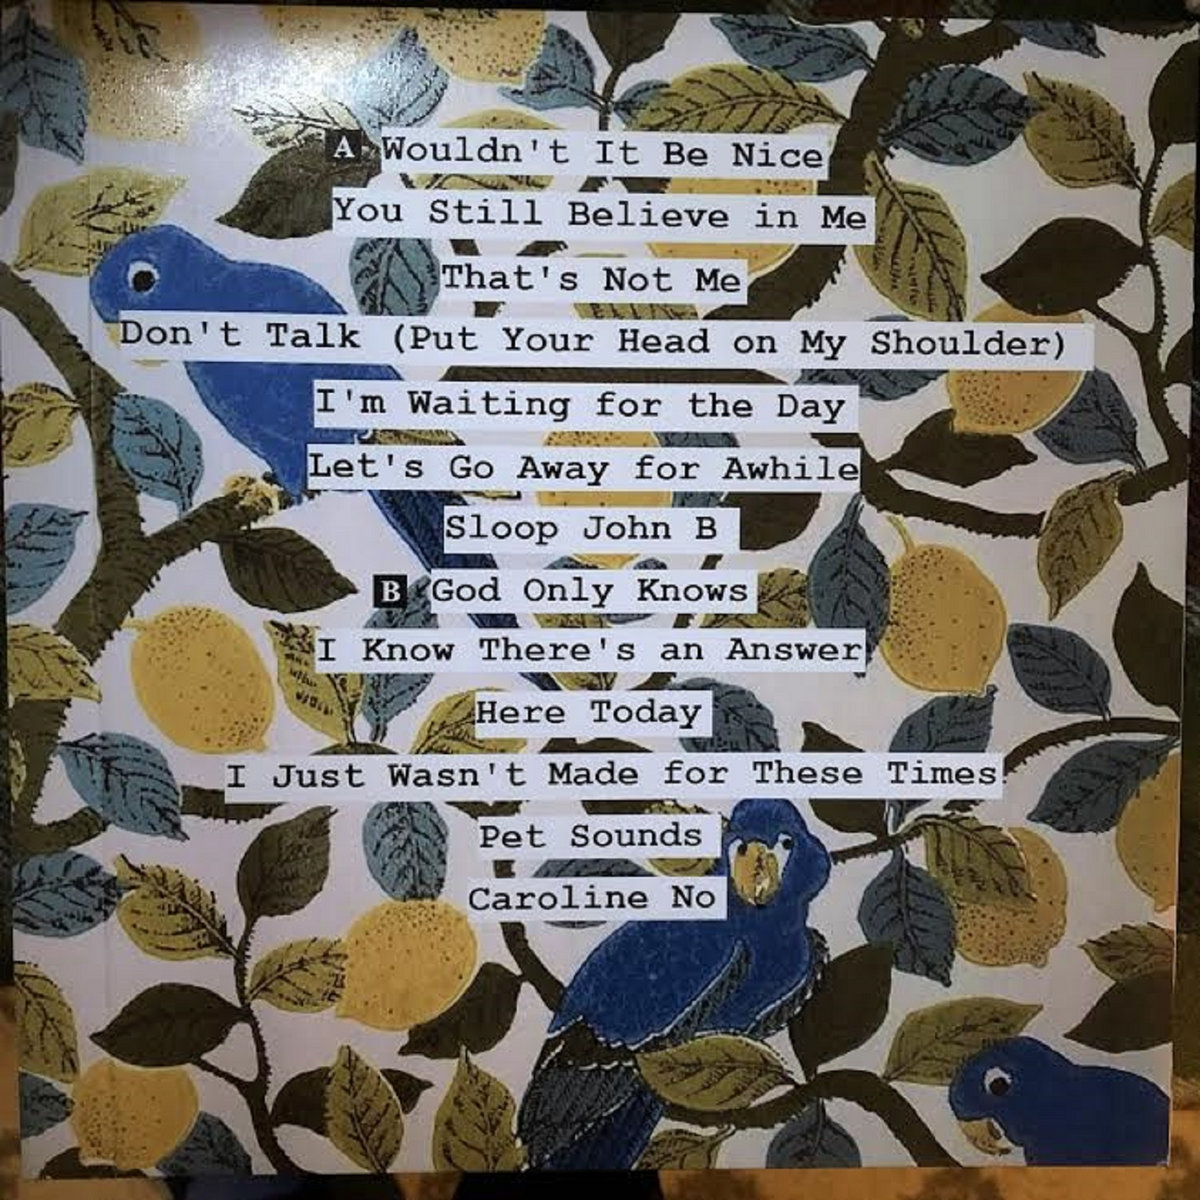 A Wouldn't It Be Nice
You Still Believe in Me
That's Not Me
Don't Talk (Put Your Head on My Shoulder)
I'm Waiting for the Day
Let's Go Away for Awhile
Sloop John B
B God Only Knows
I Know There's an Answer
Here Today
I Just Wasn't Made for These Times
Pet Sounds
Caroline No